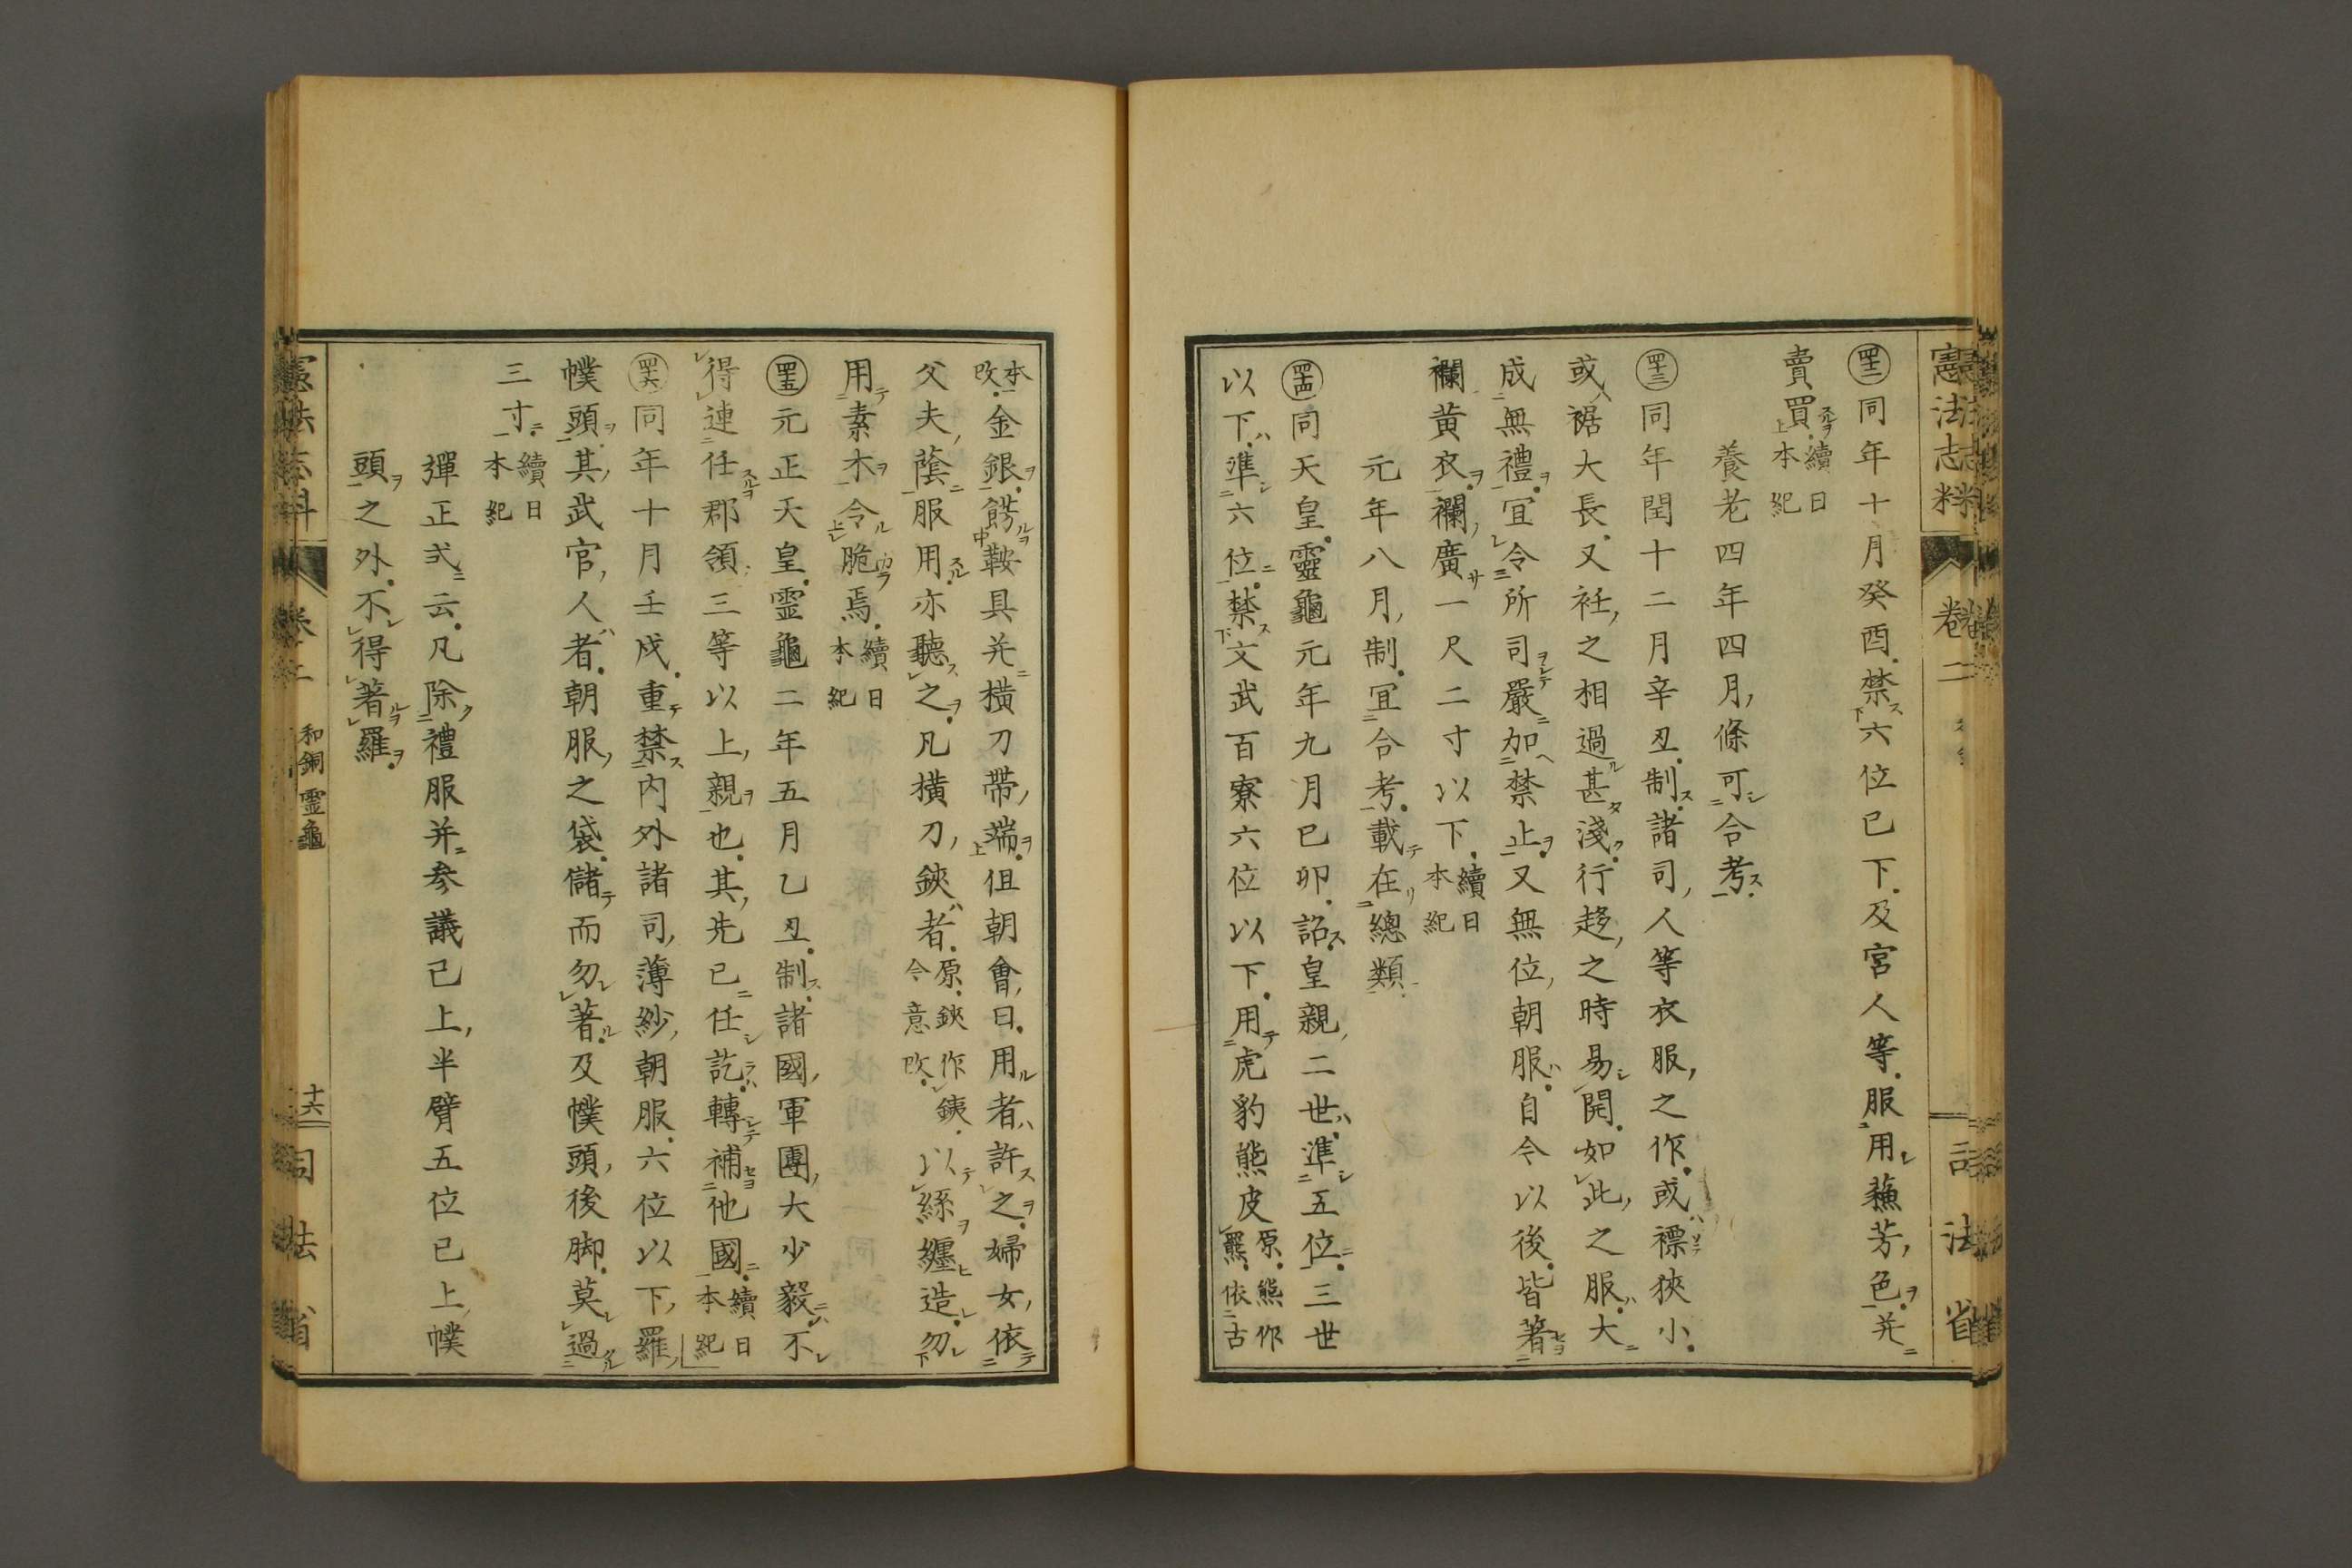 憲法志料
卷二
司法省
㊷同年十月癸酉禁六位已下及宮人等服用蘓芳色并
賣買續日本紀
養老四年四月條可合考
㊸同年閏十二月辛丑制諸司人等衣服之作或褾狹小
或裾大長又衽之相過甚淺行趍之時易開如此之服大
成無禮宜令所司嚴加禁止又無位朝服自今以後皆著
襴黃衣襴廣一尺二寸以下續日本紀
元年八月制宜合考載在總類
㊹同天皇靈龜元年九月已卯詔皇親二世準五位三世
以下準六位禁文武百寮六位以下用虎豹熊皮原熊作羆依古
本改金銀餝鞍具并橫刀帶端但朝會日用者許之婦女依
父夫蔭服用亦聽之凡橫刀鋏者原鋏作銕今意改以絲纏造勿
用素木令脆焉續日本紀
㊺元正天皇霊龜二年五月乙丑制諸國軍團大少毅不
得連任郡領三等以上親也其先已任訖轉補他國續日本紀
㊻同年十月壬戌重禁內外諸司薄紗朝服六位以下羅
幞頭其武官人者朝服之袋儲而勿著及幞頭後脚莫過
三寸續日本紀
彈正式云凡除禮服并参議已上半臂五位已上幞
頭之外不得著羅
憲法志料
卷二
和銅 霊龜
十六
司法省